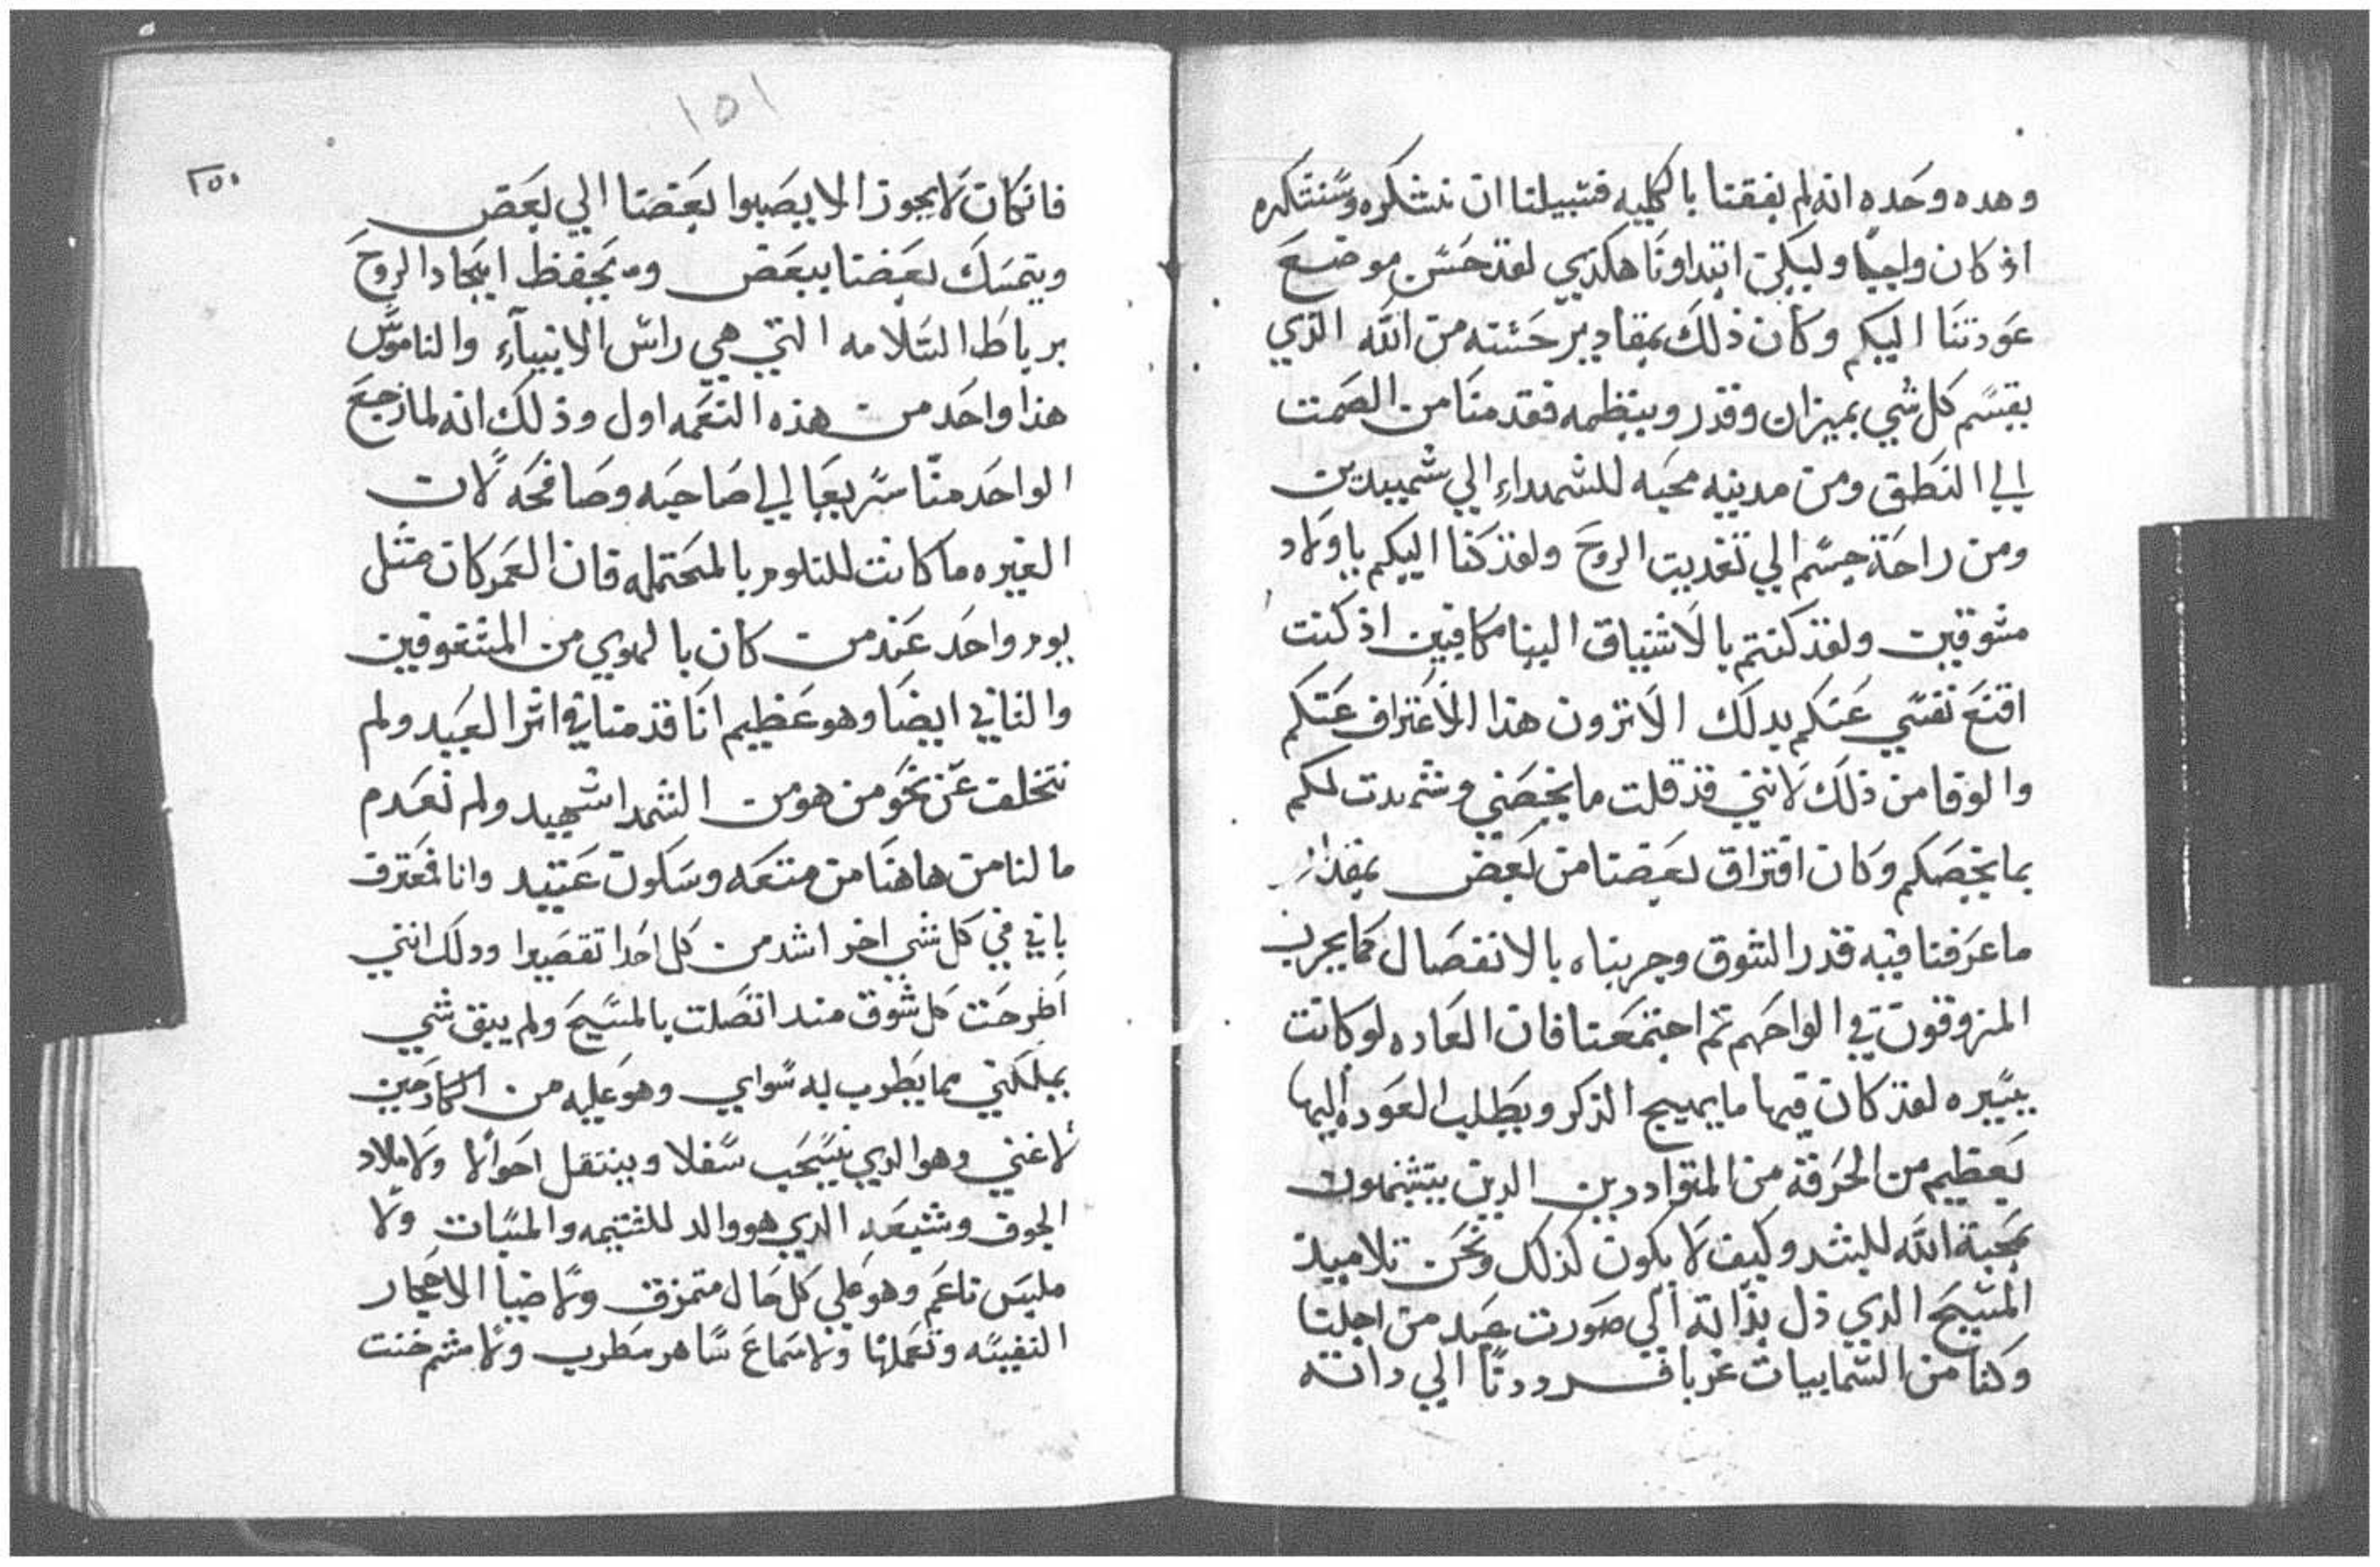 وهده وحده انه لم يفقنا بالكليه فسبيلنا ان نشكره وسنشكره
اذ كان واجبا وليكن ابتداونا هكذي لقد حسن موضع
عودتنا اليكم وكان ذلك بمقادير حسنه من الله الذي
يقسم كل شي بميزان وقدر وينظمه فقد منا من الصمت
الي النطق ومن مدينه محبه للشهداء الي شهيدين
ومن راحة جسم الي تغديت الروح ولقد كنا اليكم ياولاد
مشوقين ولقد كنتم بالاشتياق الينا مكافيين اذ كنت
اقنع نفسي عنكم بدلك الا ترون هذا الاعتراف عنكم
والوفا من ذلك لانني قد قلت ما يخصني وشهدت لكم
بما يخصكم وكان افتراق بعضنا من بعض بمقدار
ما عرفنا فيه قدر الشوق وجربناه بالانفصال كما يجرب
المزوقون في الواحهم تم اجتمعنا فان العاده لو كانت
يسيره لقد كان فيها ما يهيج الذكر ويطلب العوده اليها
بعظيم من الحرقة من المتواددين الدين يتشبهون
بمحبة الله للبشر وكيف لا يكون كذلك ونحن تلاميذ
المسيح الدي ذل بذاته الي صورت عبد من اجلنا
وكنا من السمابيات غربا فردونا الي داته
١٥١
٢٥٠
فان كان لا يجوز الا يصبوا بعضنا الي بعض
ويتمسك بعضنا ببعض ويحفظ ايجاد الروح
برباط السلامه التي هي راس الانبيآء والناموس
هذا واحد من هذه النعمه اول وذلك انه لما رجع
الواحد منا سريعا الي صاحبه وصافحه لان
الغيره ما كانت للتلوم بالمحتمله فان العمر كان مثل
يوم واحد عند من كان بالهوي من المشغوفين
والثاني ايضا وهو عظيم انا قدمنا في اثر العيد ولم
نتخلف عن نحو من هو من الشهدا شهيد ولم نعدم
ما لنا من هاهنا من متعه وسكون عتيد وانا فمعترف
باني في كل شي اخر اشد من كل احدا تقصيرا ودلك انني
اطرحت كل شوق مند اتصلت بالمسيح ولم يبق شي
يملكني مما يطرب له سواي وهو عليه من الكادحين
لا غني وهو الدي يسحب سفلا وينتقل احوالا ولا ملاد
الجوف وشبعه الدي هو والد للشتيمه والمسبات ولا
ملبس ناعم وهو علي كل حال متمزق ولا ضيا الاحجار
النفيسه وتعملها ولا سماع ساهر مطرب ولا مشم خنت